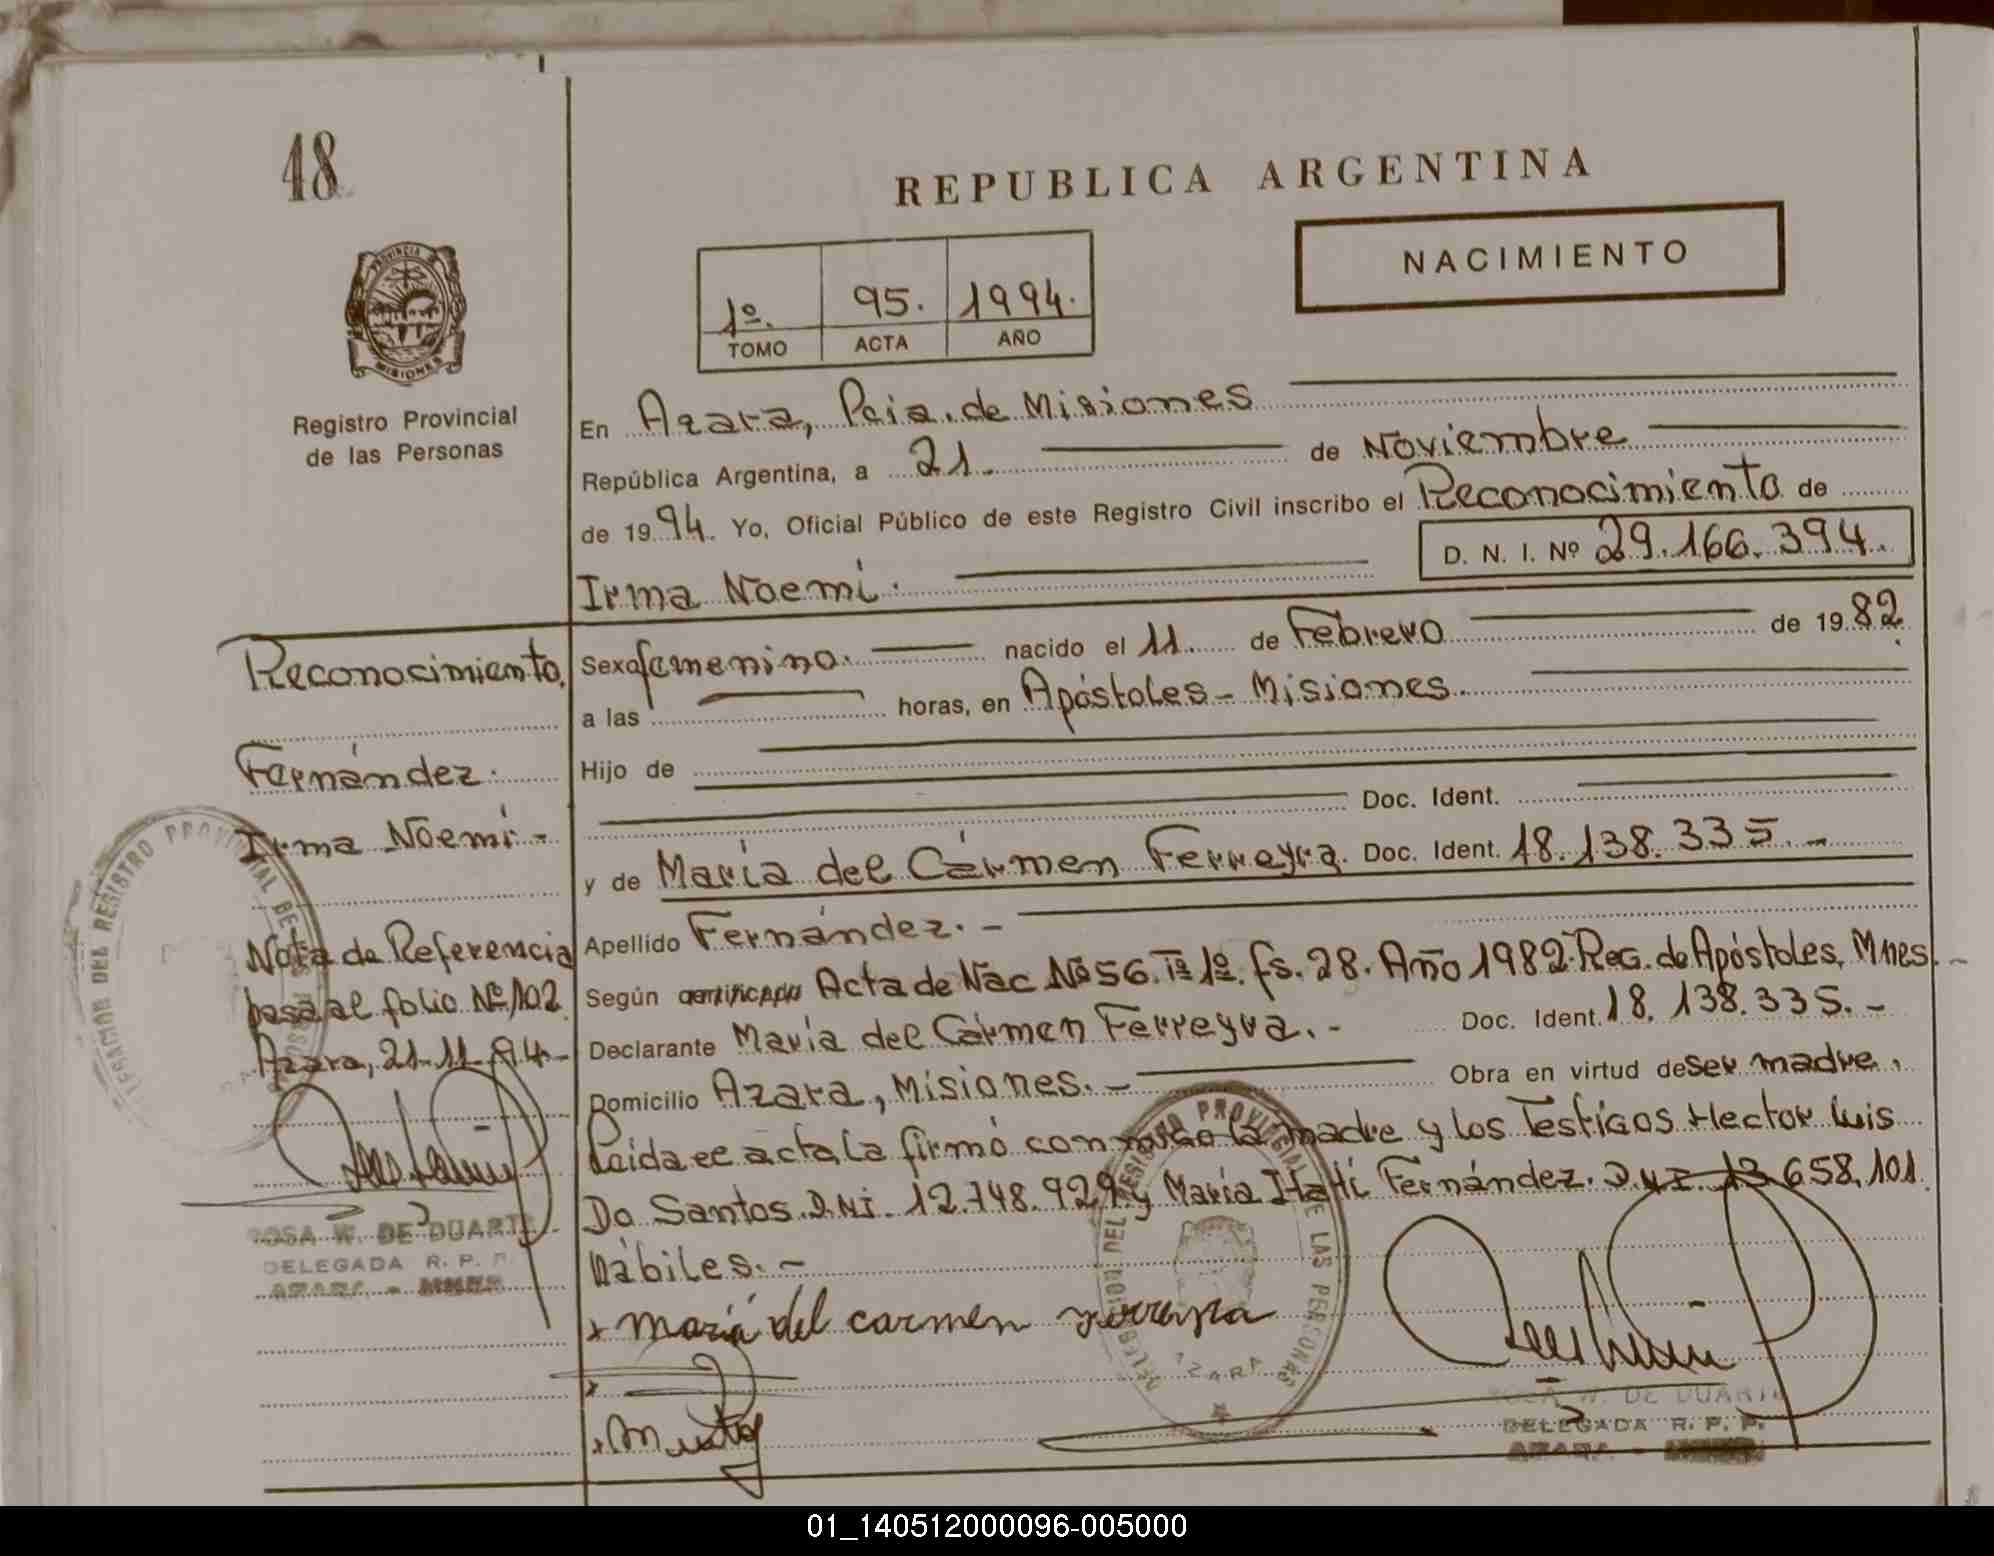 48
REPUBLICA ARGENTINA
NACIMIENTO
1º. 95. 1994.
TOMO ACTA AÑO
PROVINCIA D
MISIONES
Registro Provincial
de las Personas
En Azara, Pcia. de Misiones
República Argentina, a 21. de Noviembre
de 1994. Yo, Oficial Público de este Registro Civil inscribo el Reconocimiento de
D. N. I. Nº 29.166.394.
Irma Noemí.
Sexo femenino. nacido el 11. de Febrero de 1982.
a las horas, en Apóstoles - Misiones.
Hijo de
Doc. Ident.
y de María del Cármen Ferreyra. Doc. Ident. 18.138.335. -
Apellido Fernández. -
Según certificado Acta de Nac Nº 56. Tº 1º. fs. 28. Año 1982. Reg. de Apóstoles, Mnes. -
Declarante María del Cármen Ferreyra. - Doc. Ident. 18.138.335. -
Domicilio Azara, Misiones. - Obra en virtud de ser madre.
Leida el acta, la firmó con migo la madre y los Testigos Hector Luis
Do Santos. D.N.I. 12.748.929. y María Itatí Fernández. D.N.I. 13.658.101.
Hábiles. -
x maria del carmen ferreyra
x
x
Reconocimiento.
Fernández.
Irma Noemí. -
Nota de Referencia
pasa al folio Nº 102
Azara, 21-11-94. -
ROSA W. DE DUARTE
DELEGADA R. P. P.
AZARA - MNES
DELEGACION DEL REGISTRO PROVINCIAL DE LAS PERSONAS
AZARA
ROSA W. DE DUARTE
DELEGADA R. P. P.
AZARA -
REGISTRO PROVINCIAL DE
01_140512000096-005000